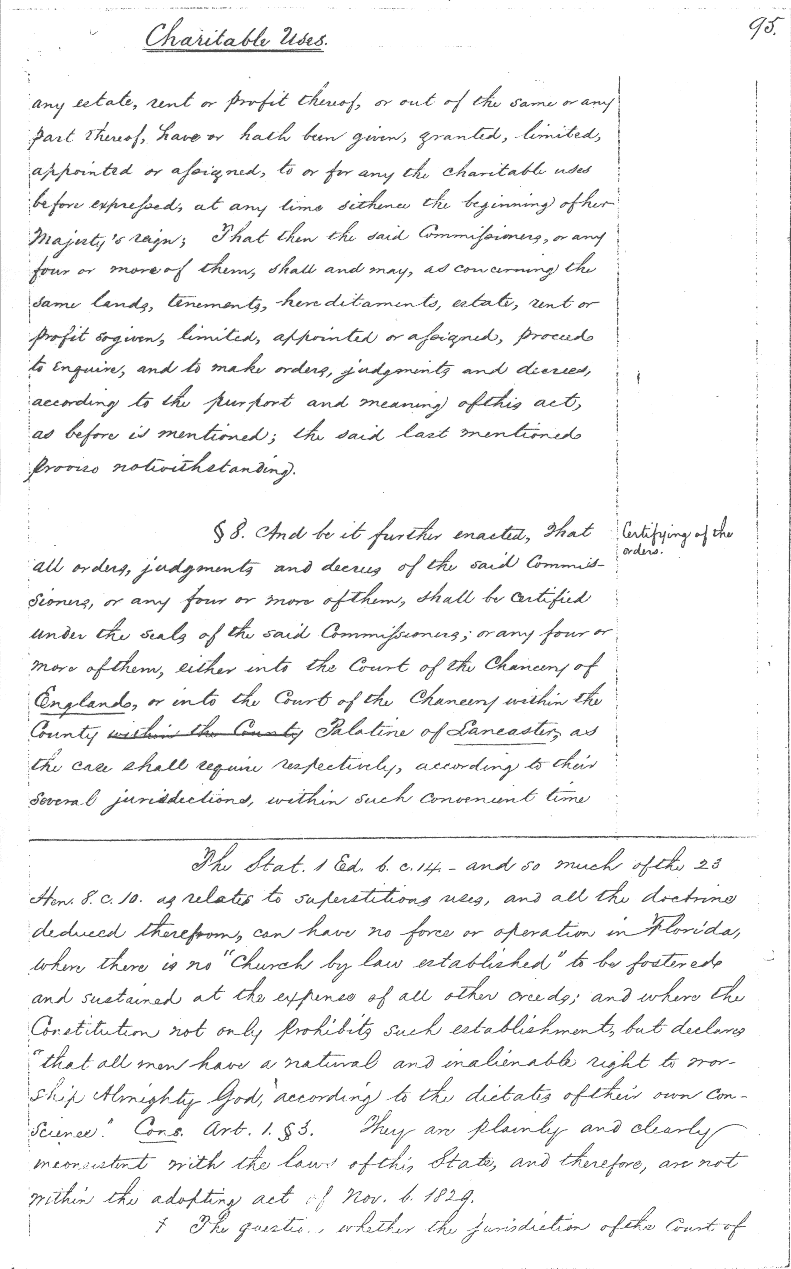 95.
Charitable Uses.
any estate, rent or profit thereof, or out of the same or any
part thereof, have or hath been given, granted, limited,
appointed or assigned, to or for any the charitable uses
before expressed, at any time sithence the beginning of her
Majesty's reign; That then the said Commissioners, or any
four or more of them, shall and may, as concerning the
same lands, tenements, hereditaments, estate, rent or
profit so given, limited, appointed or assigned, proceed
to enquire, and to make orders, judgments and decrees,
according to the purport and meaning of this act,
as before is mentioned; the said last mentioned
proviso notwithstanding.
§ 8. And be it further enacted, That
all orders, judgments and decrees of the said Commis-
sioners, or any four or more of them, shall be certified
under the seals of the said Commissioners, or any four or
more of them, either into the Court of the Chancery of
England, or into the Court of the Chancery within the
County within the County Palatine of Lancaster, as
the case shall require respectively, according to their
several jurisdictions, within such convenient time
Certifying of the
orders.
The Stat. 1 Ed. 6. c. 14 - and so much of the 23
Hen. 8. c. 10. as relates to superstitious uses, and all the doctrine
deduced therefrom, can have no force or operation in Florida,
where there is no "Church by law established" to be fostered
and sustained at the expense of all other creeds; and where the
Constitution not only prohibits such establishment, but declares
"that all men have a natural and inalienable right to wor-
ship Almighty God, according to the dictates of their own con-
science." Cons. Art. 1. § 3. They are plainly and clearly
inconsistent with the laws of this State, and therefore, are not
within the adopting act of Nov. 6. 1829.
† The questio whether the jurisdiction of the Court of